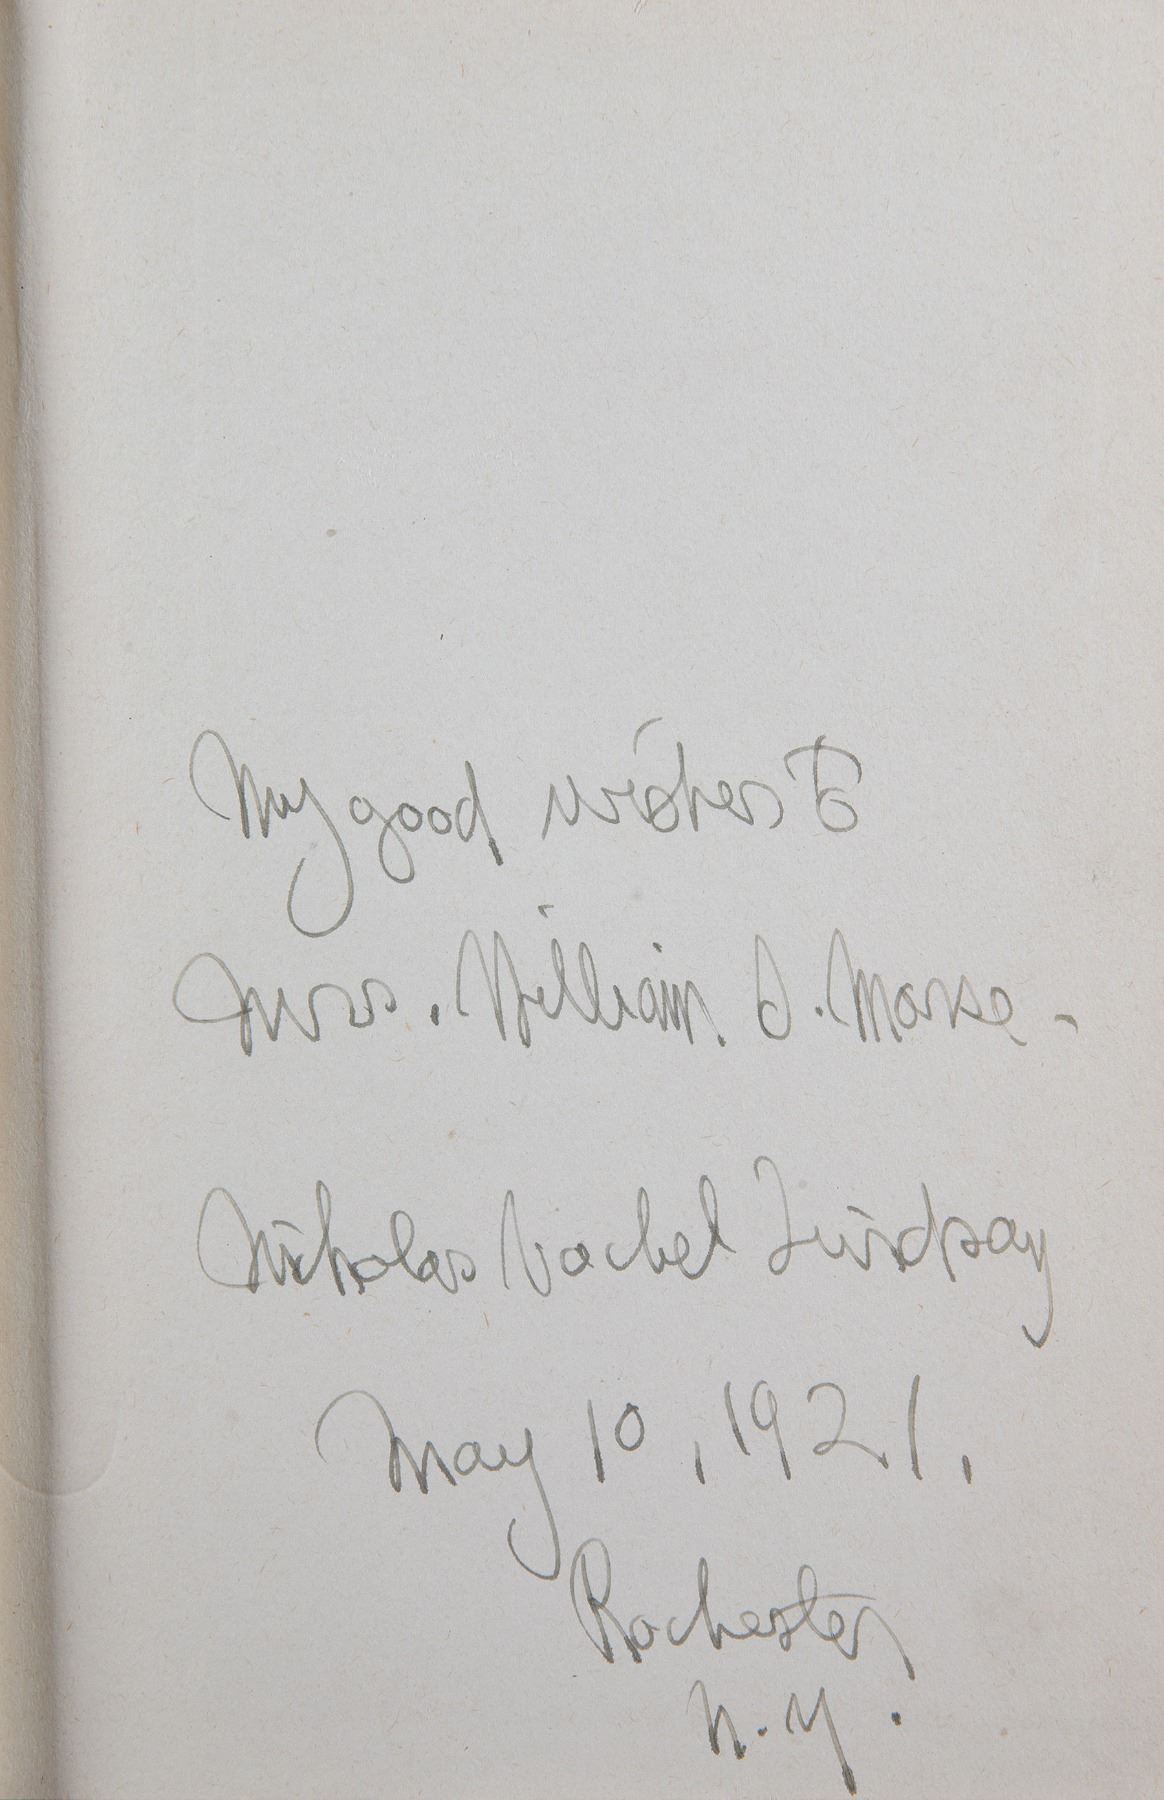 My good wishes to
Mrs. William. S. Morse -
Nicholas Vachel Lindsay
May 10, 1921.
Rochester
N.Y.